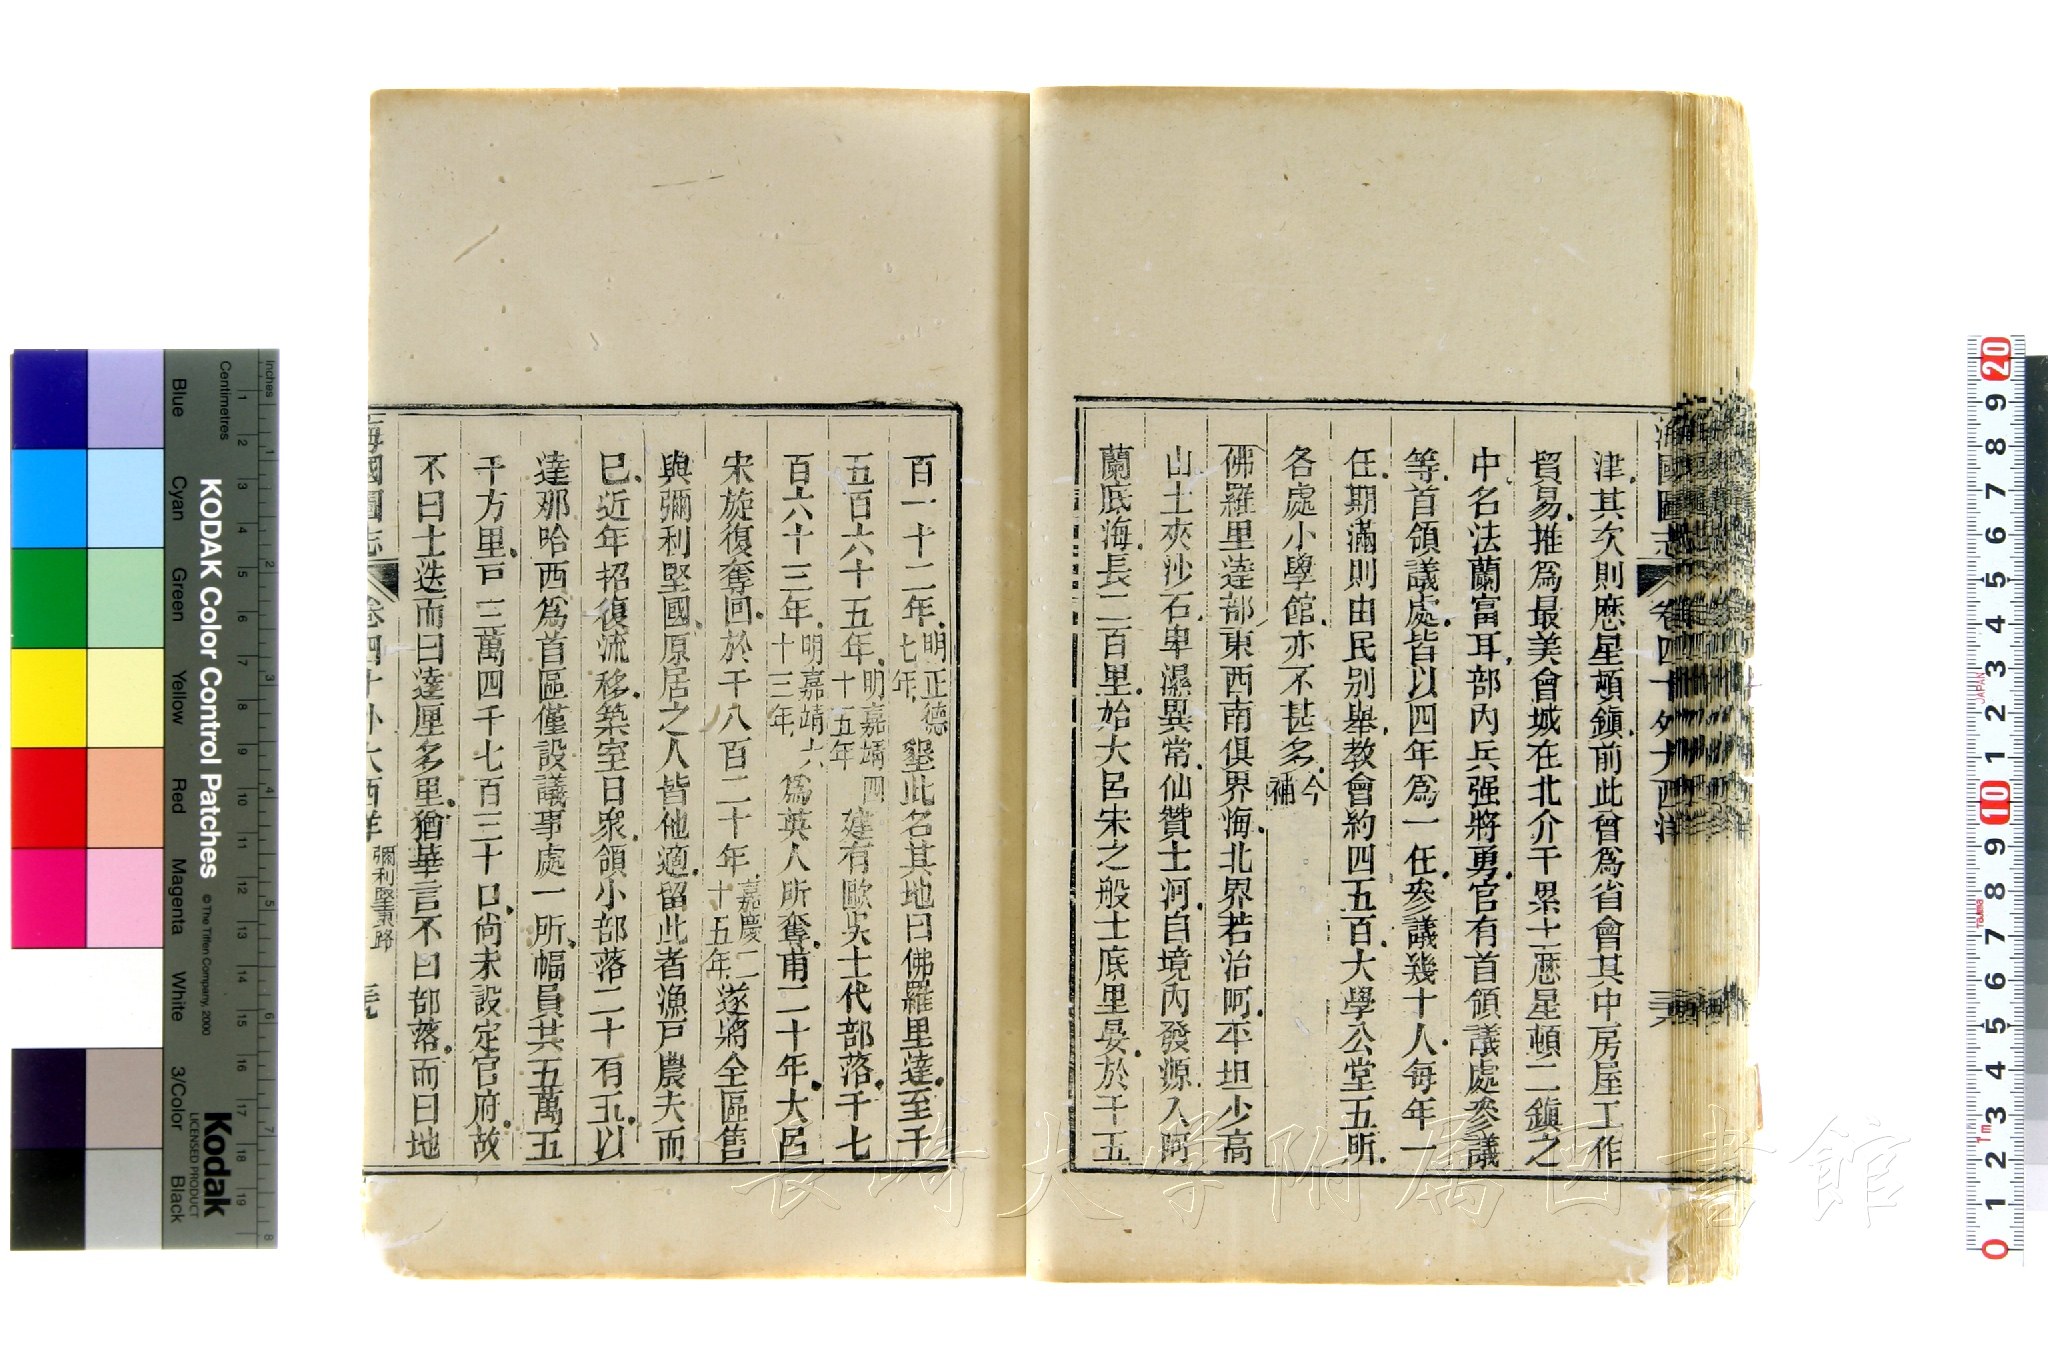 海國圖志 卷四十 外大西洋
津其次則歷星頓鎮前此曾爲省會其中房屋工作
貿易推爲最美會城在北介干累士歷星頓二鎮之
中名法蘭富耳部內兵强將勇官有首領議處參議
等首領議處皆以四年爲一任參議幾十人每年一
任期滿則由民别舉教會約四五百大學公堂五所
各處小學館亦不甚多今補
佛羅里達部東西南俱界海北界若治阿平坦少高
山土夾沙石卑濕異常仙贊士河自境內發源入阿
蘭底海長二百里始大呂宋之般士底里晏於千五
百一十二年明正德七年墾此名其地曰佛羅里達至千
五百六十五年明嘉靖四十五年建有歐矣士代部落千七
百六十三年明嘉靖六十三年爲英人所奪甫二十年大呂
宋旋復奪回於千八百二十年嘉慶二十五年遂將全區售
與彌利堅國原居之人皆他適留此者漁戸農夫而
已近年招復流移築室日衆領小部落二十有五以
達那哈西爲首區僅設議事處一所幅員共五萬五
千方里戸三萬四千七百三十口尙未設定官府故
不曰士迭而曰達厘多里猶華言不曰部落而曰地
海國圖志 卷四十 外大西洋 彌利堅東路
KODAK Color Control Patches
© The Tiffen Company, 2000
Kodak
LICENSED PRODUCT
Inches
Centimetres
Blue
Cyan
Green
Yellow
Red
Magenta
White
3/Color
Black
JAPAN
Tajima
長崎大学附属図書館